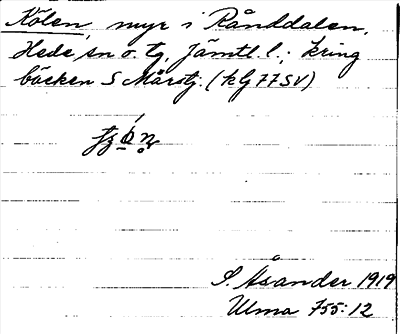 Kölen, myr i Rånddalen,
Hede sn o. tg, Jämtl. l.; kring
bäcken S Mårtj. (klg 77 SV)
S. Åsander 1919
Ulma 755:12